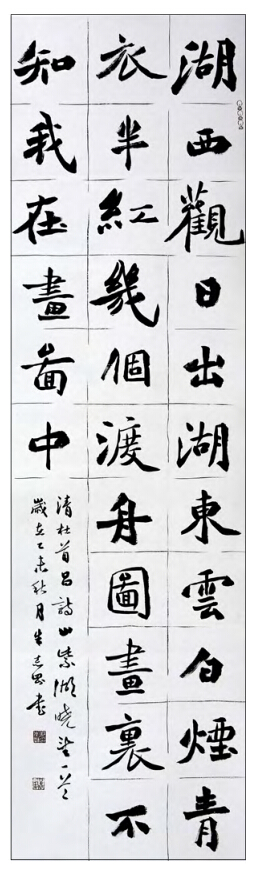 湖西觀日出湖東雲白煙青
衣半紅幾個渡舟圖畫裏不
知我在畫啚中
清杜首昌詩山紫湖曉望一首
歲在乙未秋月 書